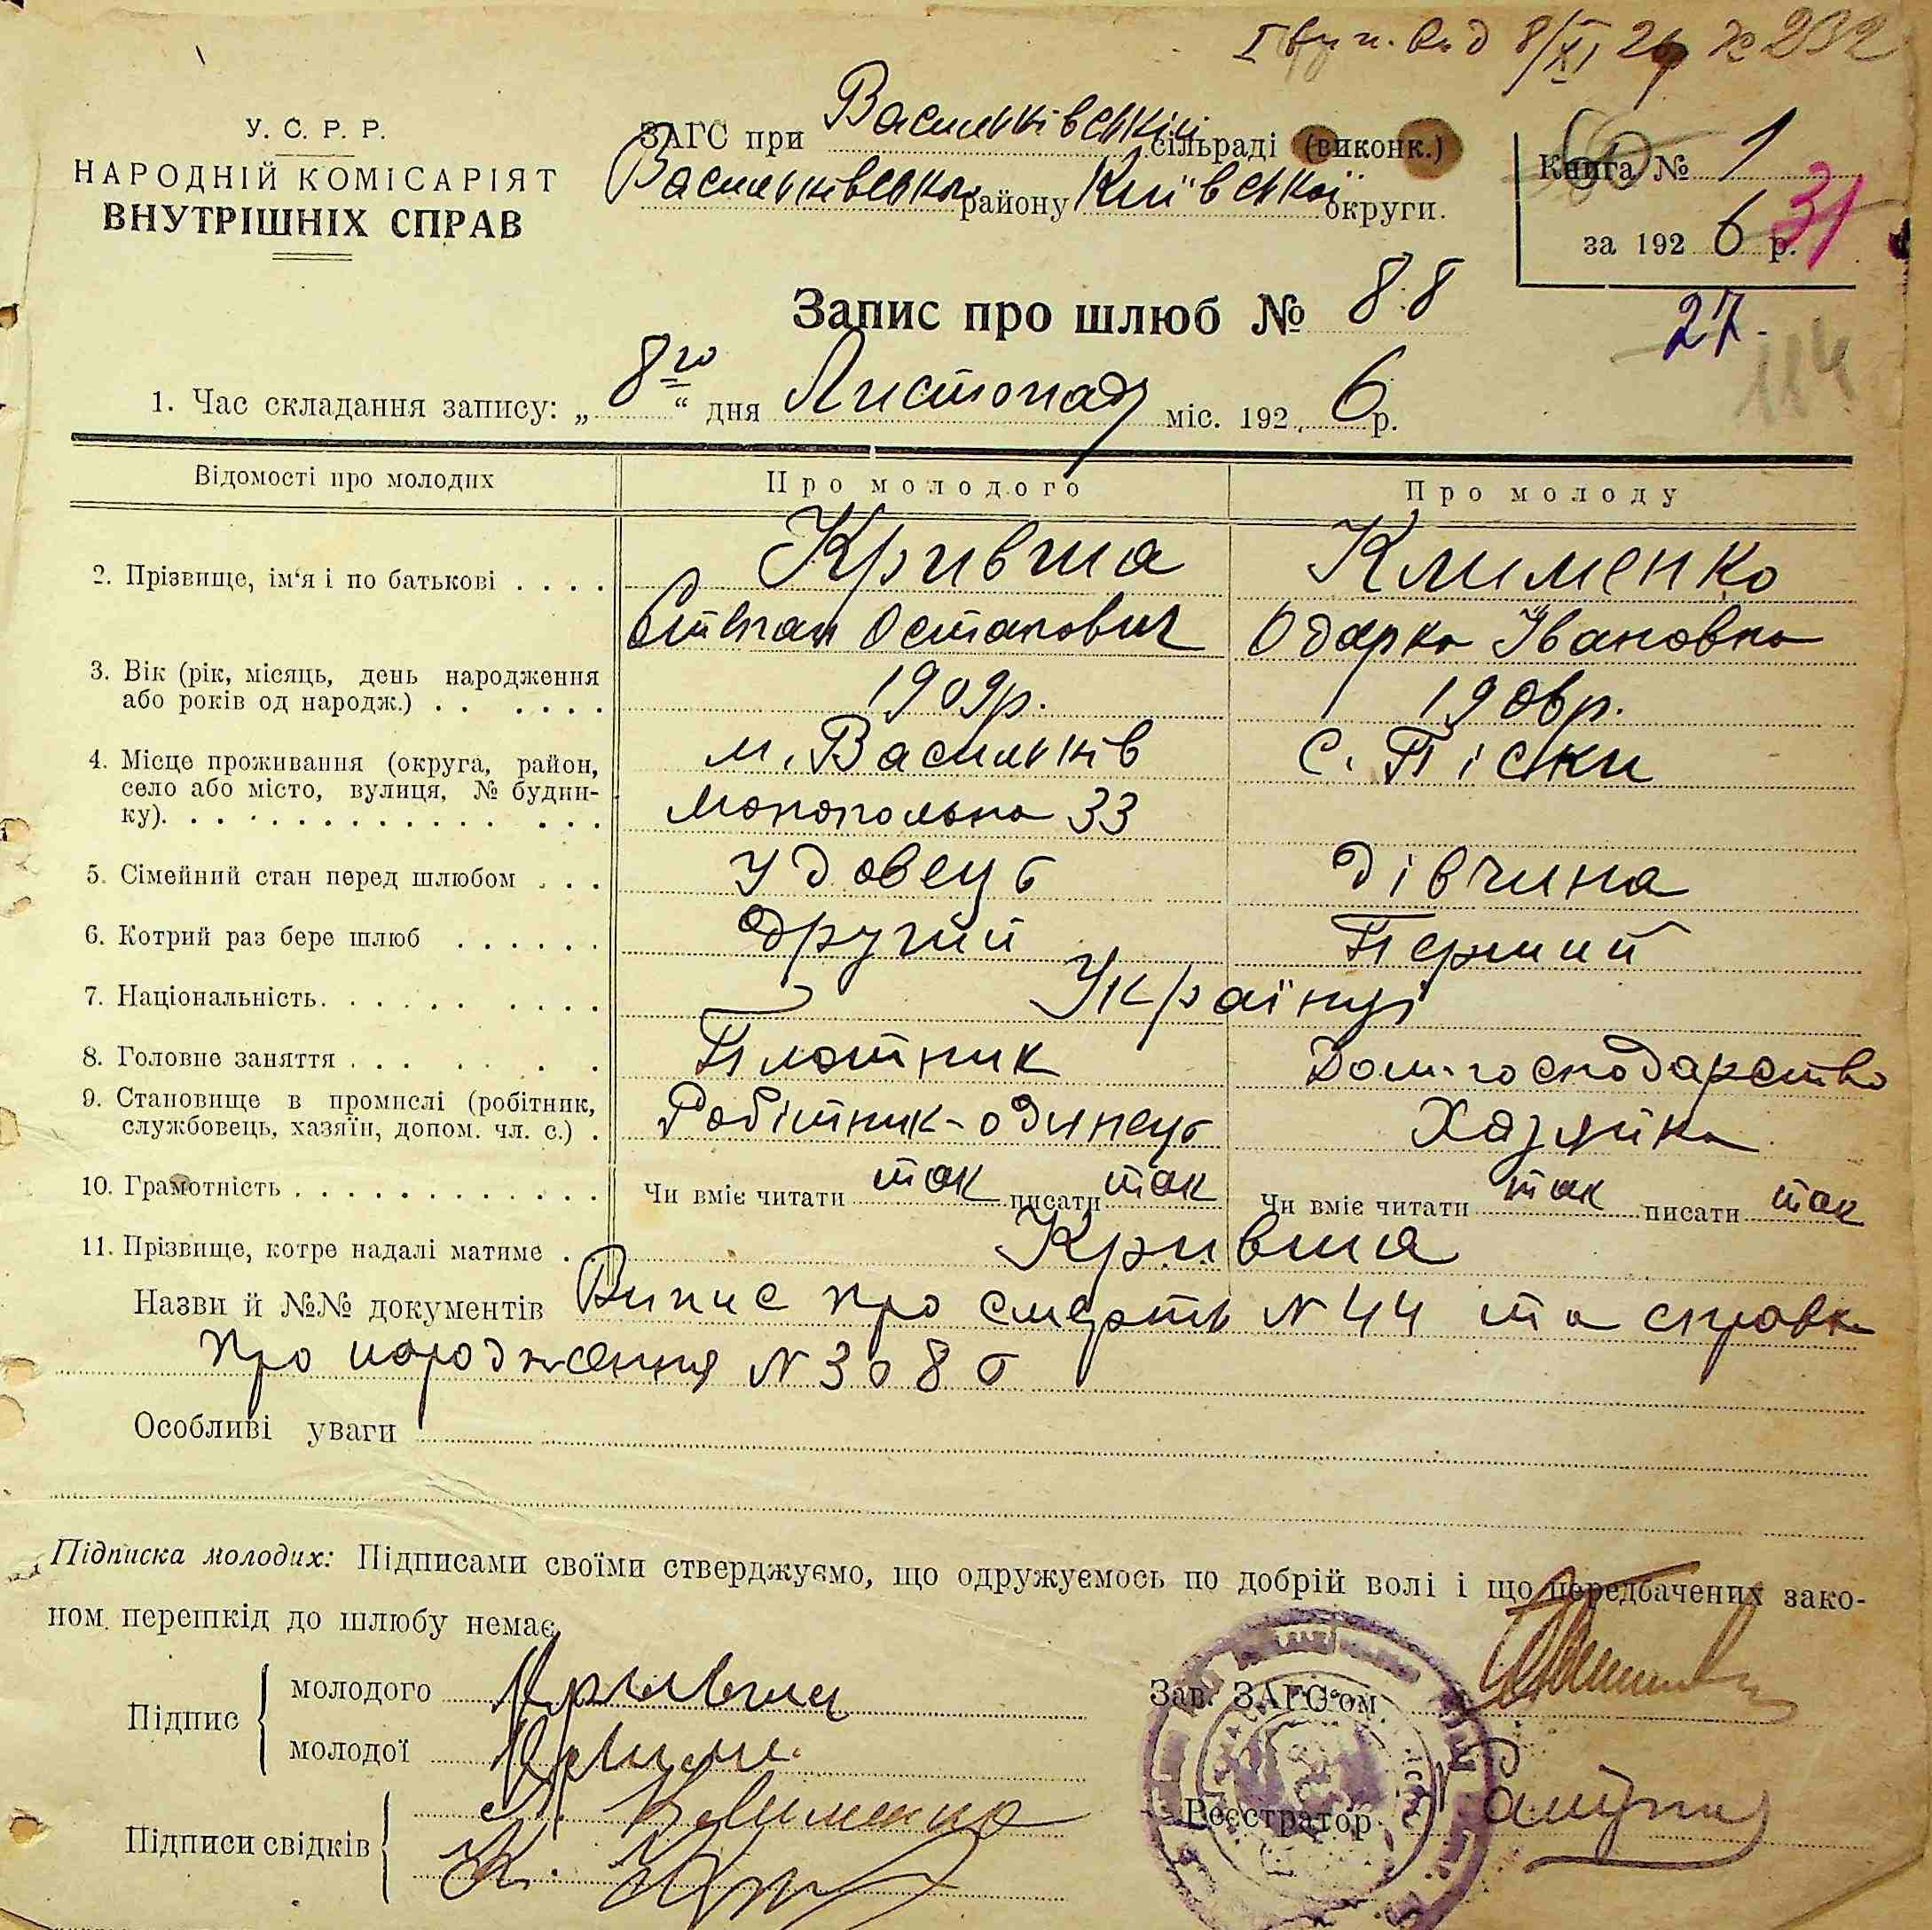 8/XI 26р № 232
У. С. Р. Р.
НАРОДНІЙ КОМІСАРІЯТ
ВНУТРІШНІХ СПРАВ
ЗАГС при Васильківській сільраді (виконк.)
Васильківського району Київської округи.
Книга № 1
за 1926 р. 31
27.
114
Запис про шлюб № 88
1. Час складання запису: „8го“ дня Листопаду міс. 1926 р.
Відомості про молодих Про молодого Про молоду
2. Прізвище, ім‘я і по батькові . . . . Кривша Клименко
Степан Остапович Одарка Івановна
3. Вік (рік, місяць, день народження
або років од народж.) . . . . . . 1909р. 1906р.
4. Місце проживання (округа, район, м. Васильків с. Піски
село або місто, вулиця, № будин-
ку). . . . . . . . . . . . . . . Монопольна 33
5. Сімейний стан перед шлюбом . . . Удовець дівчина
6. Котрий раз бере шлюб . . . . . . другий Перший
7. Національність. . . . . . . . . . Українці
8. Головне заняття . . . . . . . Плотник Дом-господарство
9. Становище в промислі (робітник,
службовець, хазяїн, допом. чл. с.) . Робітник-одинець Хазяйка
10. Грамотність . . . . . . . . . . . . Чи вміє читати так писати так Чи вміє читати так писати так
11. Прізвище, котре надалі матиме . Кривша
Назви й №№ документів Випис про смерть N 44 та справка
про народження N 308
Особливі уваги
Підписка молодих: Підписами своїми стверджуємо, що одружуємось по добрій волі і що передбачених зако-
ном перешкід до шлюбу немає
Підпис
молодого Кривша
молодої
Зав. ЗАГС‘ом
Підписи свідків
Клименко
К.
Реєстратор